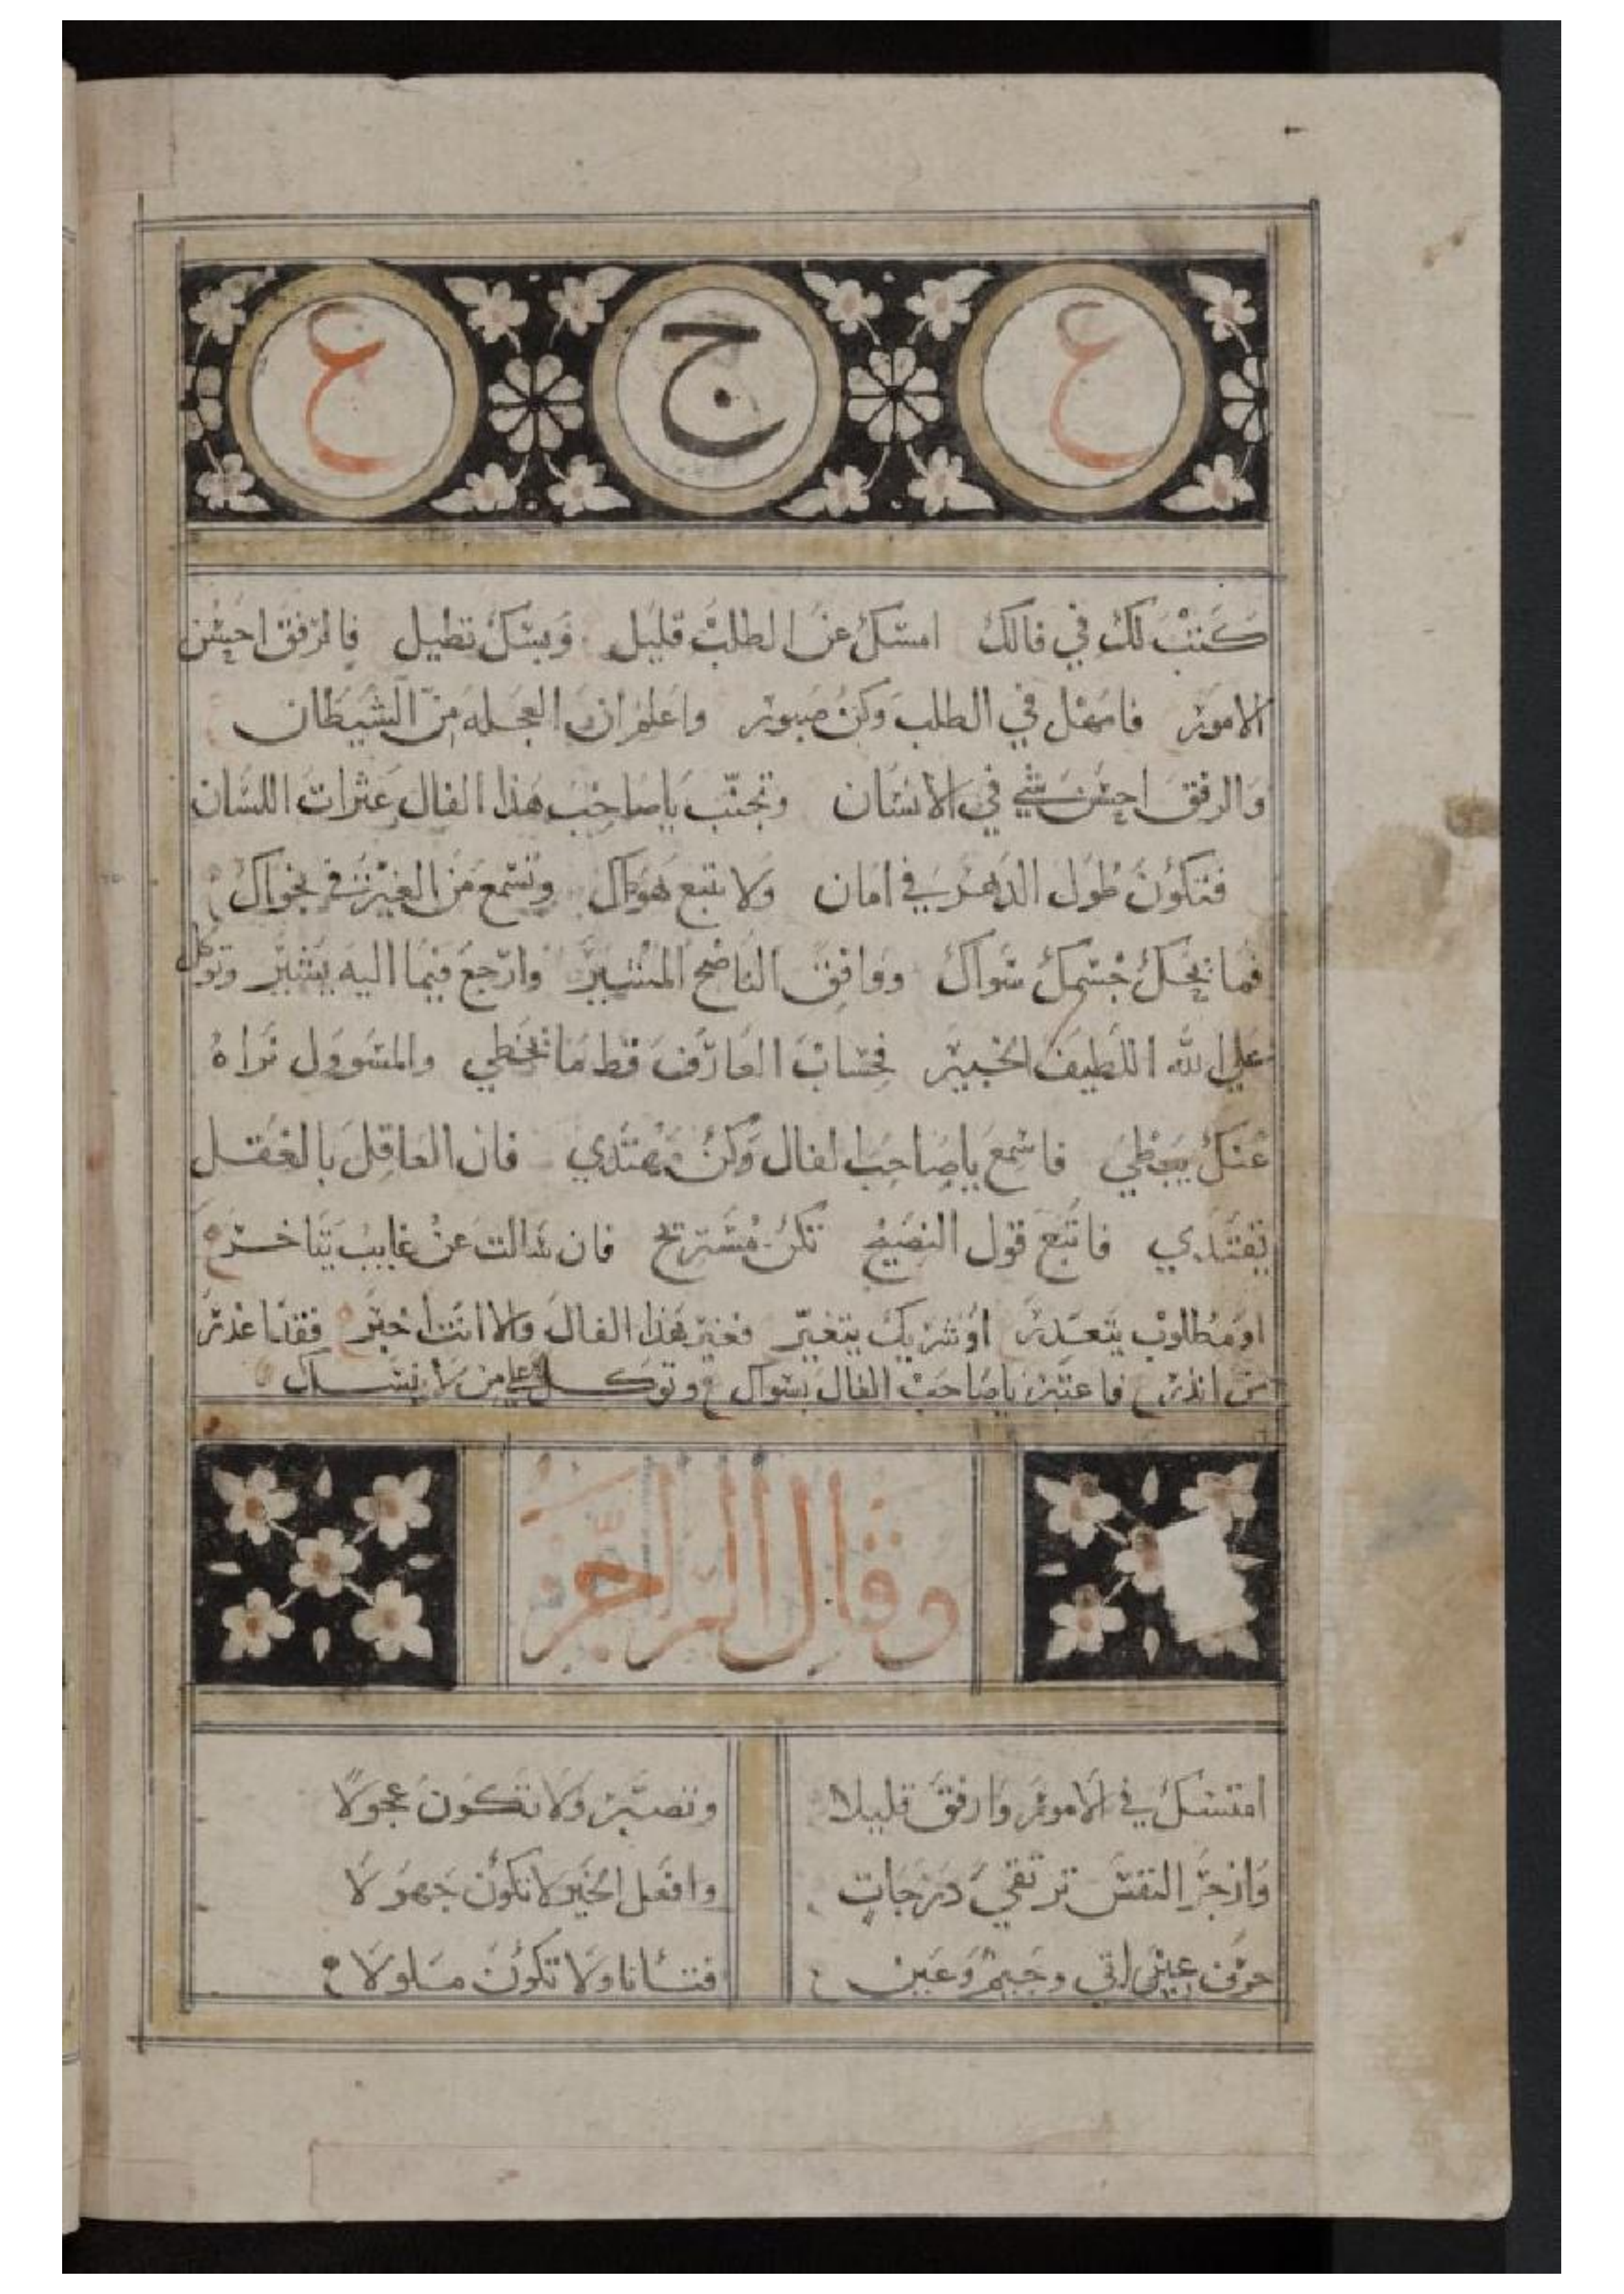 ع ج ع
كتبت لك في فالك امسك عن الطلب قليل وبسك تطيل فالرفق احسن
الامور فامهل في الطلب وكن صبور واعلم ان العجله من الشيطان
والرفق احسن شي في الانسان وتجنب يا صاحب هذا الفال عثرات اللسان
فتكون طول الدهر في امان ولا تتبع هواك وتسمع من الغير في نجواك
فما يحك جسمك سواك ووافق الناصح المشير وارجع فيما اليه يشير وتوكل
علي الله اللطيف الخبير فحساب العارف قط ما تخطي والمسوول تراه
عنك يبطي فاسمع يا صاحب الفال وكن مهتدي فان العاقل بالعقل
يقتدي فاتبع قول النصيح تكن مستريح فان سالت عن غايب يتاخر
او مطلوب يتعذر او شريك يتغير فغير هذا الفال والا انت اخبر فقد اعذر
من انذر فاعتبر يا صاحب الفال بسواك وتوكل علي من لا ينساك
وقال الراجز
امتسك في الامور وارفق قليلا وتصبر ولا تكون عجولا
وازجر النفس ترتقي درجات وافعل الخير لا تكون جهولا
حرف عين اتي وجيم وعين ولا تكون ملولا